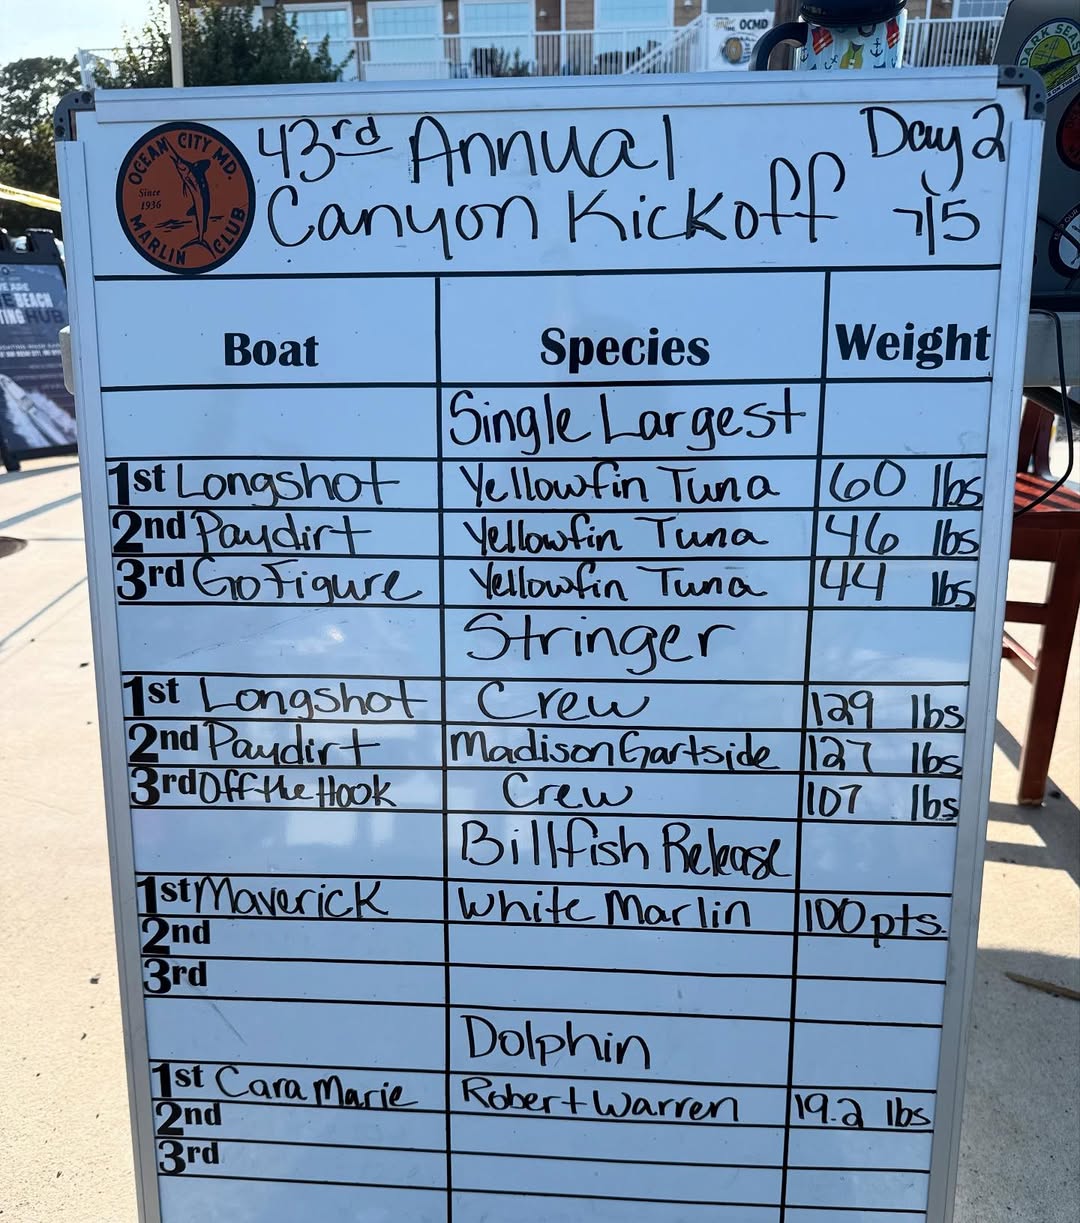 OCMD
DARK SEAS
OCEAN CITY MD.
Since
1936
MARLIN CLUB
43rd Annual
Canyon Kickoff
Day 2
7/5
BEACH
HUB
Boat Species Weight
Single Largest
1st Longshot Yellowfin Tuna 60 lbs
2nd Paydirt Yellowfin Tuna 46 lbs
3rd Go Figure Yellowfin Tuna 44 lbs
Stringer
1st Longshot Crew 129 lbs
2nd Paydirt Madison Gartside 127 lbs
3rd Off the Hook Crew 107 lbs
Billfish Release
1st Maverick White Marlin 100 pts.
2nd
3rd
Dolphin
1st Cara Marie Robert Warren 19.2 lbs
2nd
3rd